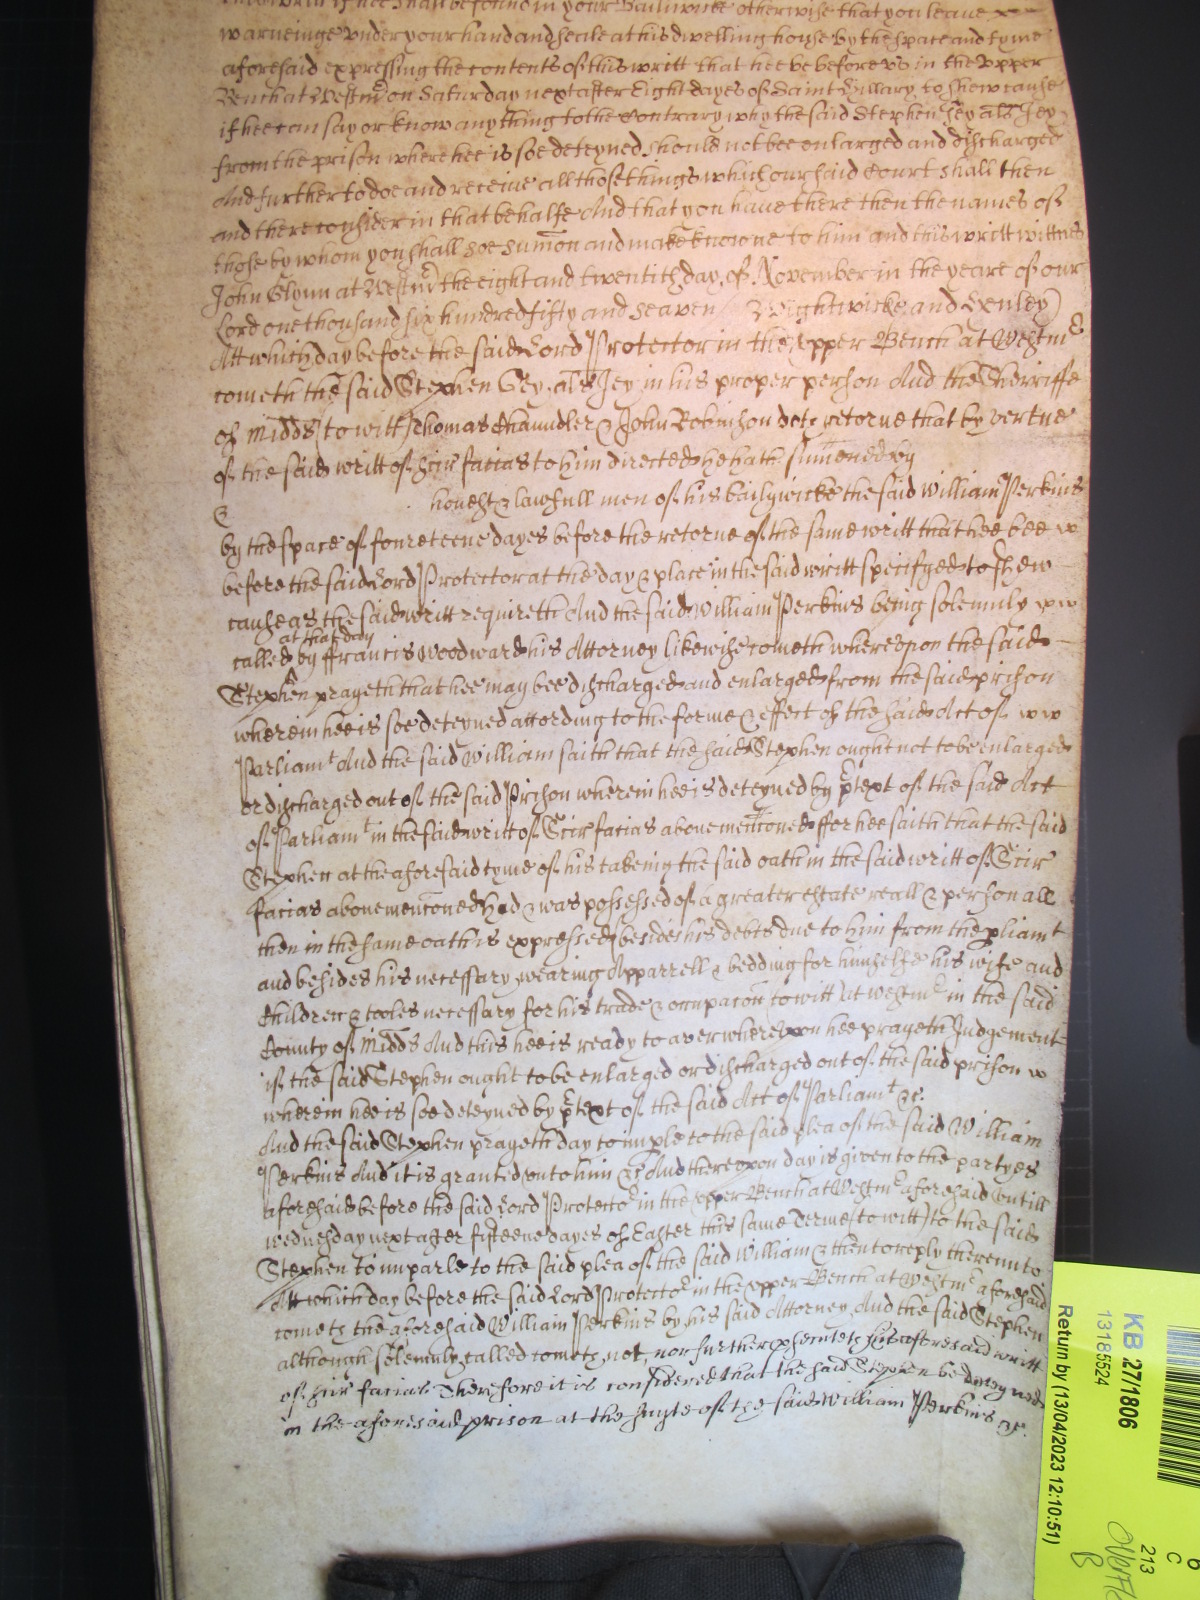 this writt if hee shalbe found in your Bailiwicke otherwise that you leave
warneinge under your hand and seale at his dwelling house by the space and tyme
aforesaid expressing the contents of this writt that hee be before us in the Upper
Bench at Westmr on Saturday next after Eight dayes of Saint Hillary to shew cause
if hee can say or know any thing to the Contrary why the said Stephen Gey als Jey
from the prison where hee is soe deteyned should not bee enlarged and discharged
And further to doe and receive all those things which our said Court shall then
and there consider in that behalfe And that you have there then the names of
those by whom you shall soe sumon and make knowne to him and this writt wittnes
John Glynn at Westmr the eight and twentith day of November in the yeare of our
Lord one thousand six hundred fifty and seaven / Wightwicke and Henley)
Att which day before the said Lord Protector in the upper Bench at Westmr
cometh the said Stephen Gey als Jey in his proper person And the Sherriffe
of Midds (to witt) Thomas Chaundler & John Robinson doth retorne that by vertue
of the said writt of Scir facias to him directed he hath sumoned by
honest & lawfull men of his bailywicke the said William Perkins
by the space of foureteene dayes before the retorne of the same writt that hee bee
before the said Lord Protector at the day & place in the said writt specifyed to shew
cause as the said writt requireth And the said William Perkins being solemnly
at that day
called by Francis Woodward his Attorney likewise cometh whereupon the said
Stephen prayeth that hee may bee discharged and enlarged from the said prison
wherein hee is soe deteyned according to the forme & effect of the said Act of
Parliamt And the said William saith that the said Stephen ought not to be enlarged
or discharged out of the said Prison wherein hee is deteyned by ptext of the said Act
of Parliamt in the said writt of Scir facias above mencioned ffor hee saith that the said
Stephen at the aforesaid tyme of his takeing the said oath in the said writt of Scir
facias above mencioned Had & was possessed of a greater estate reall & personall
then in the same oath is expressed (besides his debts due to him from the pliamt
and besides his necessary wearing Apparrell & bedding for himselfe his wife and
Children & tooles necessary for his trade & occupacon (to witt) at Westmr in the said
County of Midds And this hee is ready to aver whereupon hee prayeth Judgement
if the said Stephen ought to be enlarged or discharged out of the said prison
wherein hee is soe deteyned by ptext of the said Act of Parliamt &c.
And the said Stephen prayeth day to imple to the said plea of the said William
Perkins And it is granted unto him &c And thereupon day is given to the partyes
aforesaid before the said Lord Protector in the upper Bench at Westmr aforesaid untill
wednesday next after fifteene dayes of Easter this same Terme (to witt) to the said
Stephen to imparle to the said plea of the said William & then to reply thereunto
Att which day before the said Lord Protector in the upper Bench at Westmr aforesaid
cometh the aforesaid William Perkins by his said Attorney And the said Stephen
although solemnly called cometh not nor further psecuteth his aforesaid writt
of scir facias Therefore it is considered that the said Stephen be deteyned
in the aforesaid prison at the suyte of the said William Perkins &c.
KB 271806
13185524
Return by (13/04/2023 12:10:51)
213
C